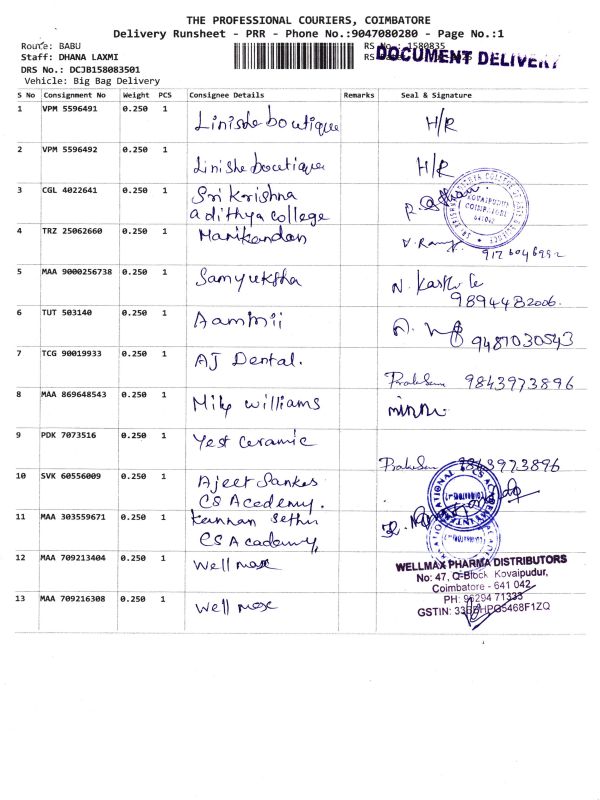 THE PROFESSIONAL COURIERS, COIMBATORE
Delivery Runsheet - PRR - Phone No.:9047080280 - Page No.:1
Route: BABU
RS No.: 1580835
Staff: DHANA LAXMI
DOCUMENT DELIVERY
DRS No.: DCJB158083501
Vehicle: Big Bag Delivery
S No Consignment No Weight PCS Consignee Details Remarks Seal & Signature
1 VPM 5596491 0.250 1 Linishe boutique H/R
2 VPM 5596492 0.250 1 Linishe boutique H/R
3 CGL 4022641 0.250 1 Sri Krishna
adithya college
4 TRZ 25062660 0.250 1 Manikandan
5 MAA 9000256738 0.250 1 Samyuktha
9894482006.
6 TUT 503140 0.250 1 Aammii 9487030543
7 TCG 90019933 0.250 1 AJ Dental. 9843973896
8 MAA 869648543 0.250 1 Mike williams
9 PDK 7073516 0.250 1 Yest ceramic 9843973896
10 SVK 60556009 0.250 1 Ajeet Sankas
CS Acedemy.
11 MAA 303559671 0.250 1 Kannan Sethu
CS Academy,
12 MAA 709213404 0.250 1 Well max
WELLMAX PHARMA DISTRIBUTORS
No: 47, C-Block Kovaipudur,
Coimbatore - 641 042
13 MAA 709216308 0.250 1 Well max
PH: 96294 71333
GSTIN: